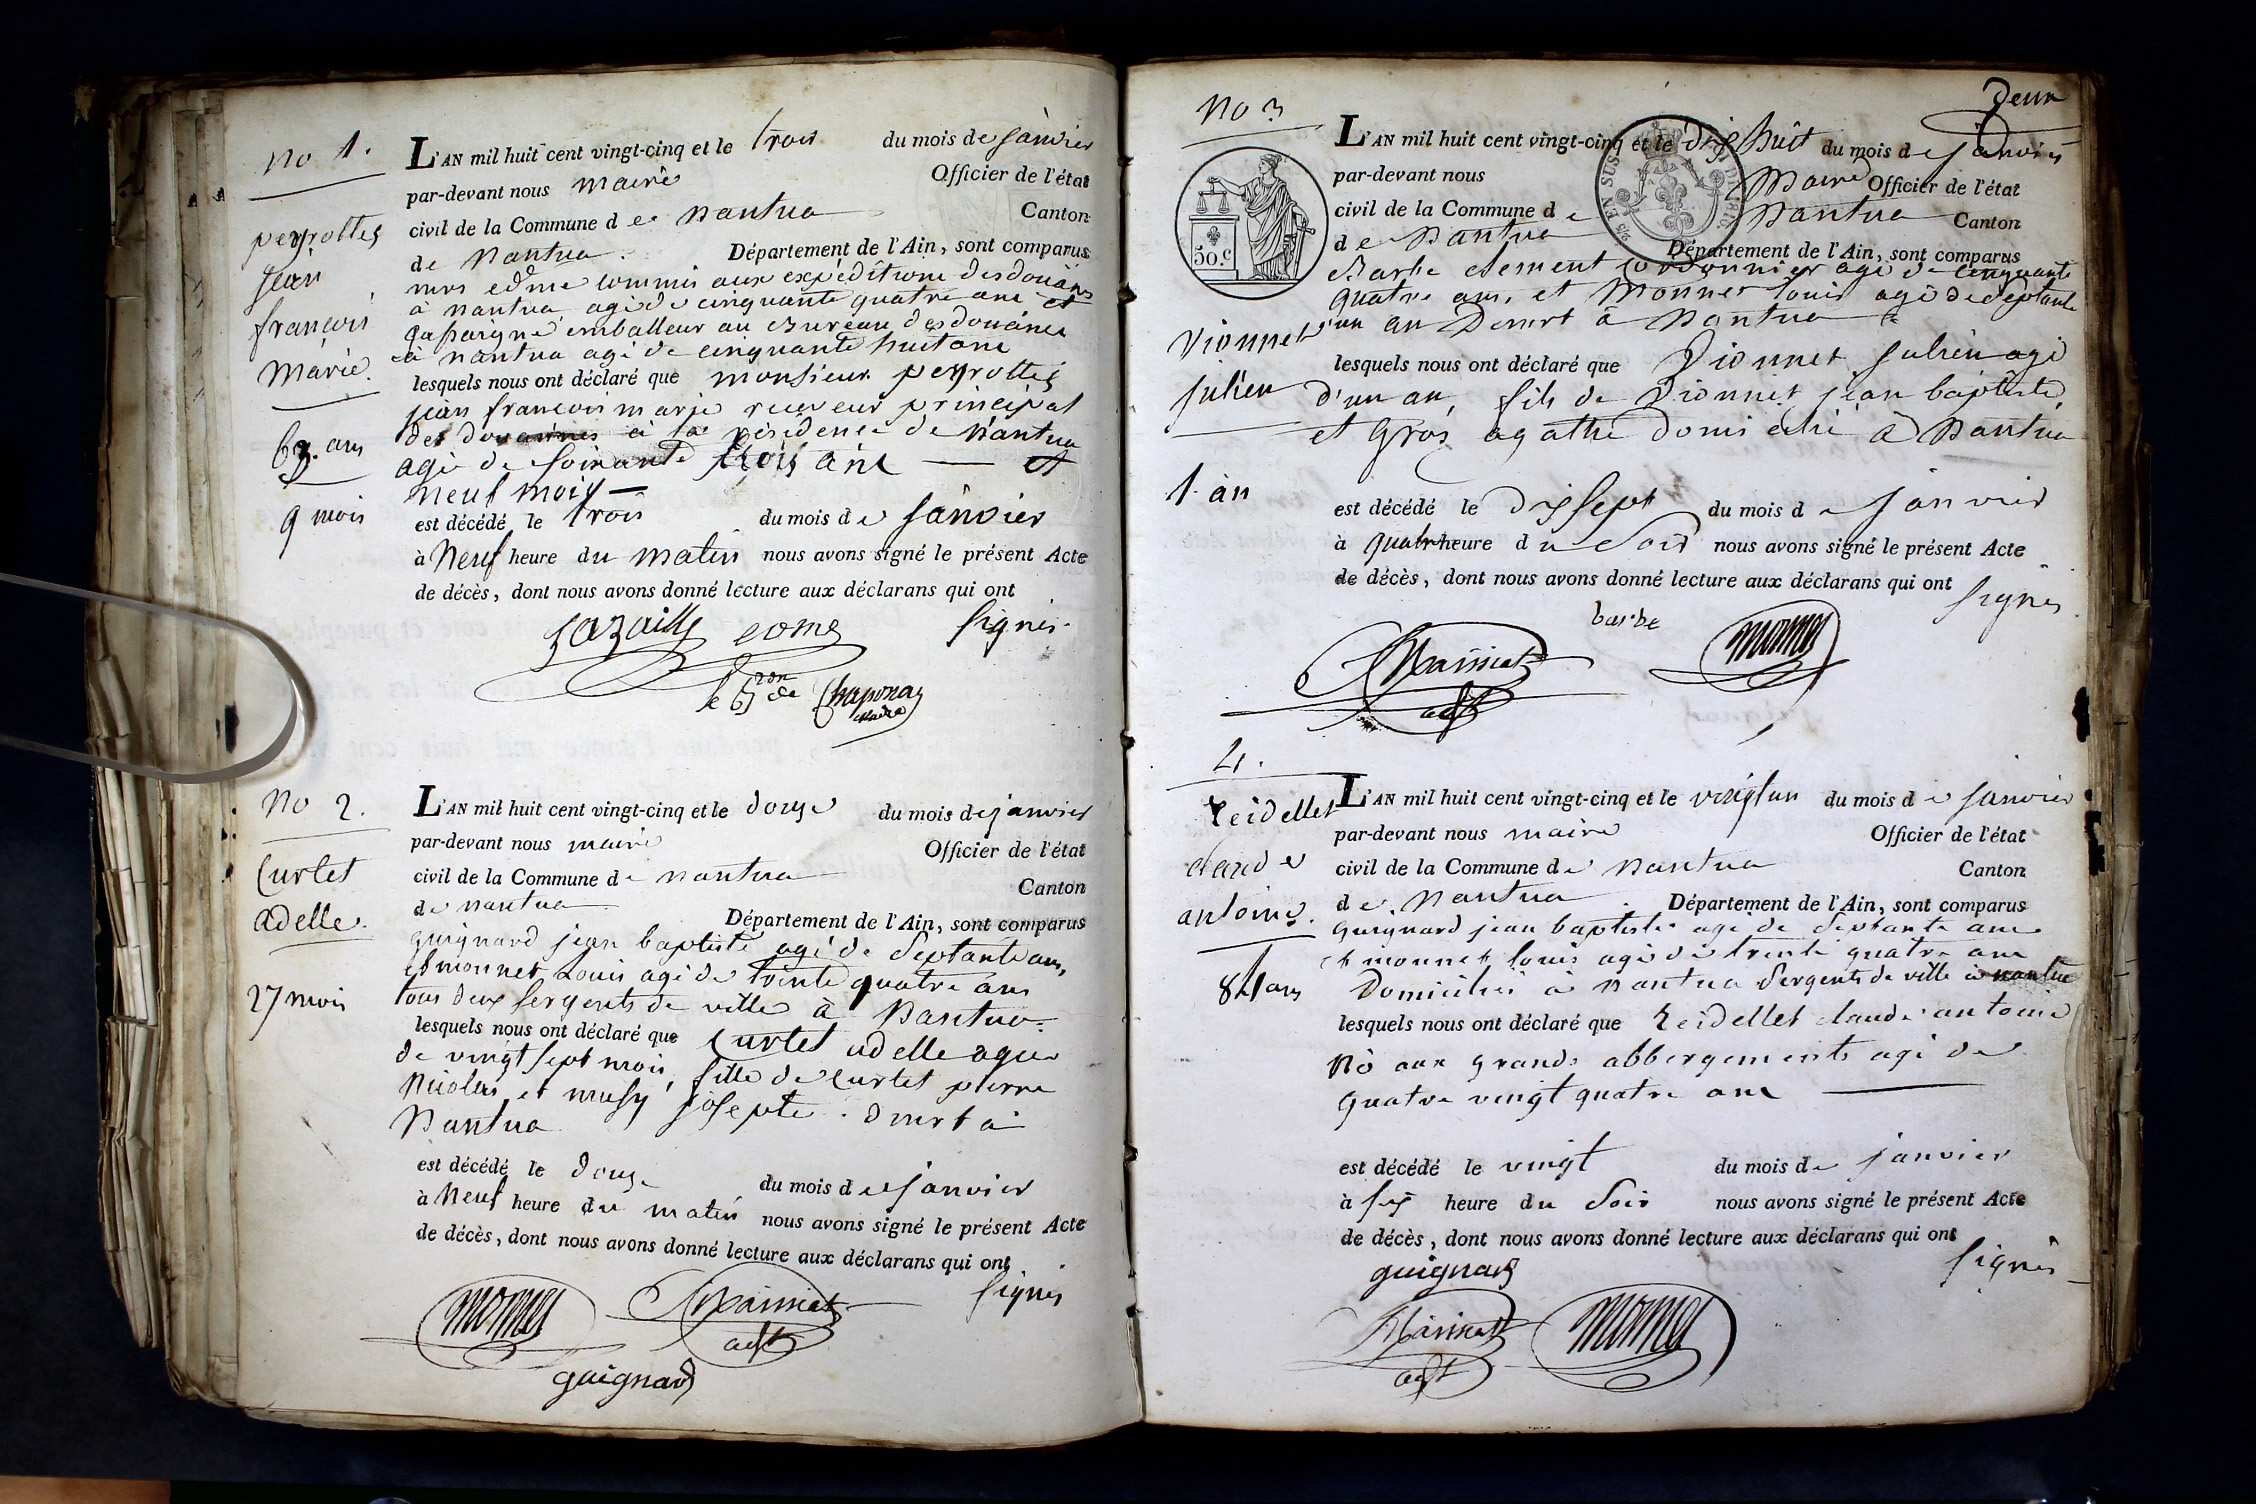 No 1.
peyrottes
jean
françois
marie.
63. ans
9 mois
L'AN mil huit cent vingt-cinq et le trois du mois de janvier
par-devant nous maire Officier de l'état
civil de la Commune de Nantua Canton
de Nantua. Département de l'Ain, sont comparus
edme commis aux expéditions des douanes
à nantua agé de cinquante quatre ans et
emballeur au Bureau des douanes
à nantua agé de cinquante huit ans
lesquels nous ont déclaré que monsieur peyrottes
jean françois marie receveur principal
des douannes à la résidence de Nantua
agé de soixante trois ans et
neuf mois
est décédé le trois du mois de janvier
à Neuf heure du matin nous avons signé le présent Acte
de décès, dont nous avons donné lecture aux déclarans qui ont
signés.
edme
le de Chaponay
No 2.
Curtet
adelle.
27 mois
L'AN mil huit cent vingt-cinq et le douze du mois de janvier
par-devant nous maire Officier de l'état
civil de la Commune de nantua Canton
de nantua Département de l'Ain, sont comparus
guignard jean baptiste agé de septante ans,
et monnet Louis agé de trente quatre ans
tous deux sergents de ville à Nantua.
lesquels nous ont déclaré que Curtet adelle agée
de vingt sept mois, fille de Curtet pierre
Nicolas et musy josepte. dmrt à
Nantua
est décédé le douze du mois de janvier
à Neuf heure du matin nous avons signé le présent Acte
de décès, dont nous avons donné lecture aux déclarans qui ont
signés
monnet
adjt
guignard
deux
No 3
50.c
EN SUS
Vionnet
julien
1 an
L'AN mil huit cent vingt-cinq et le dix huit du mois de janvier
par-devant nous Maire Officier de l'état
civil de la Commune de Nantua Canton
de Nantua Département de l'Ain, sont comparus
Barbe clement cordonnier agé de cinquante
quatre ans, et Monnet louis agé de septante
un an Dmrt à Nantua
lesquels nous ont déclaré que Vionnet julien agé
d'un an, fils de Vionnet jean baptiste,
et Gros agathe domicilié à Nantua
est décédé le dix sept du mois de janvier
à quatre heure du soir nous avons signé le présent Acte
de décès, dont nous avons donné lecture aux déclarans qui ont
signés
barbe
monnet
adjt
4.
Reidellet
claude
antoine.
84 ans
L'AN mil huit cent vingt-cinq et le vingt un du mois de janvier
par-devant nous maire Officier de l'état
civil de la Commune de Nantua Canton
de Nantua Département de l'Ain, sont comparus
Guignard jean baptiste agé de septante ans
et monnet louis agé de trente quatre ans
Domiciliés à nantua Sergents de ville à nantua
lesquels nous ont déclaré que Reidellet claude antoine
Né aux grands abbergements agé de
quatre vingt quatre ans
est décédé le vingt du mois de janvier
à six heure du soir nous avons signé le présent Acte
de décès, dont nous avons donné lecture aux déclarans qui ont
signés
guignard
adjt
monnet